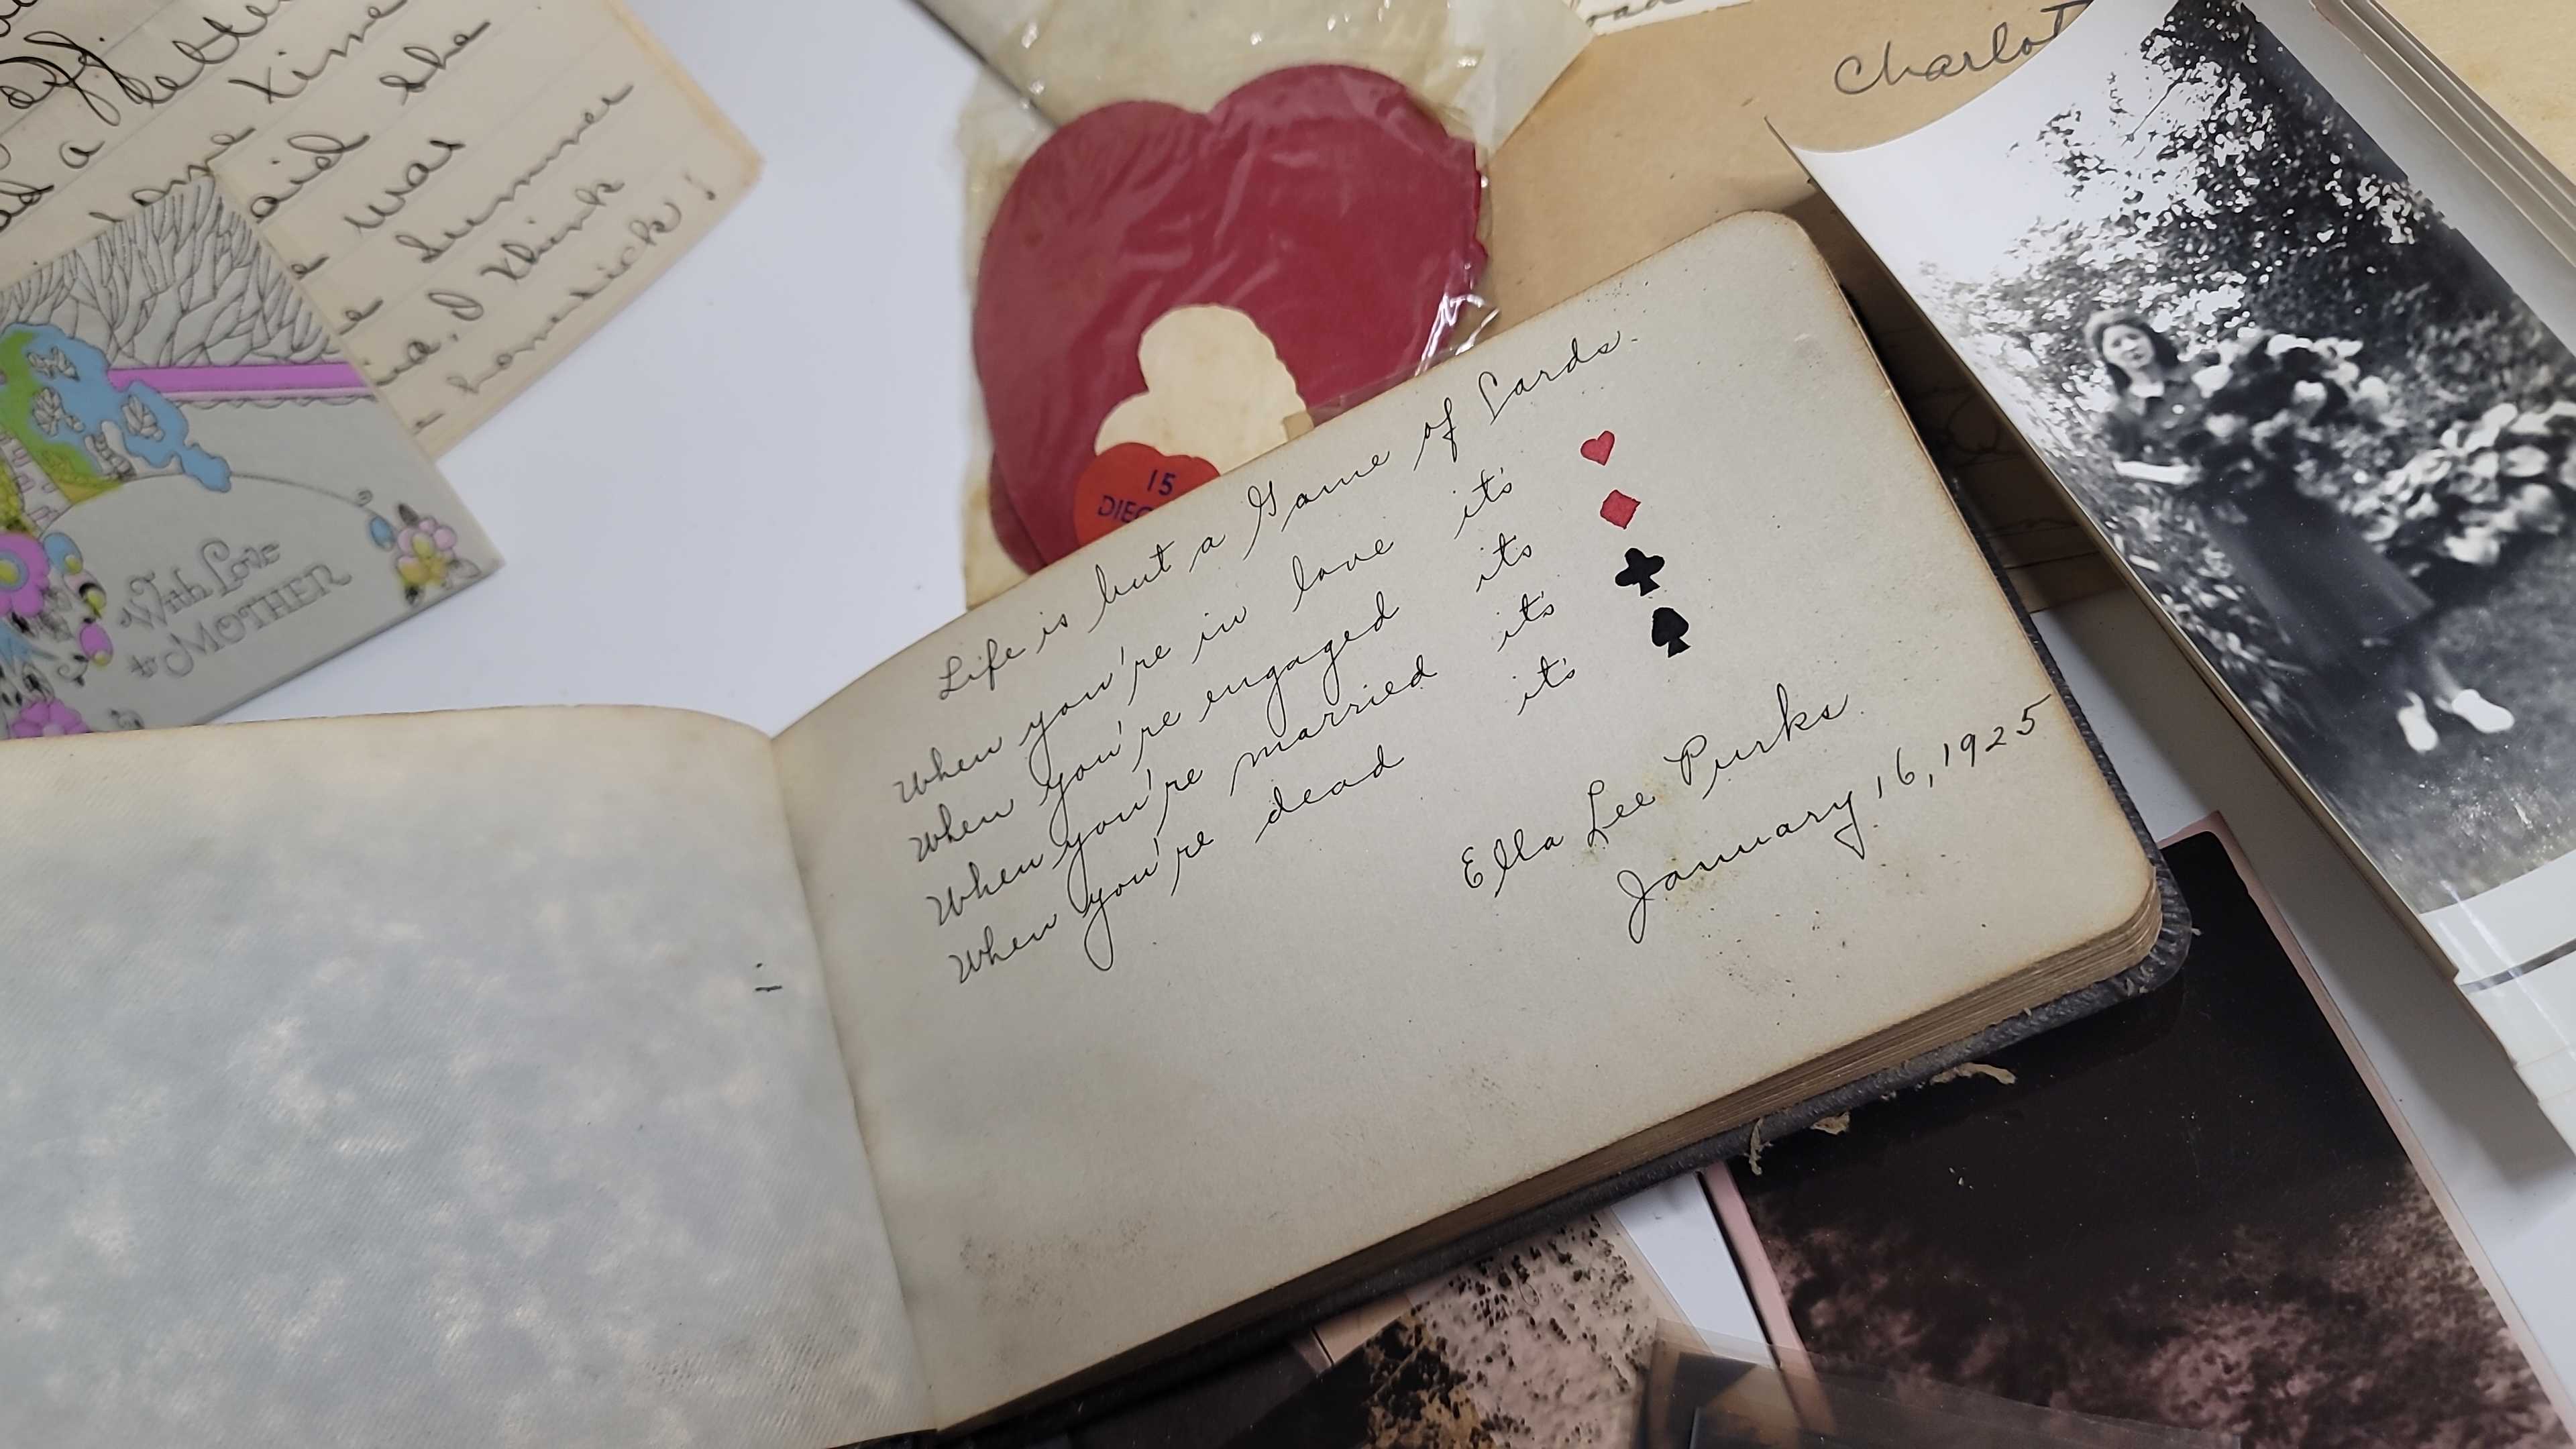 a letter
time
said she
was
summer
I think
homesick!
With Love
to MOTHER
15
Charlot
Life is but a Game of Cards.
When you're in love it's ♥
When you're engaged it's ♦
When you're married it's ♣
When you're dead it's ♠
Ella Lee Purks.
January 16, 1925